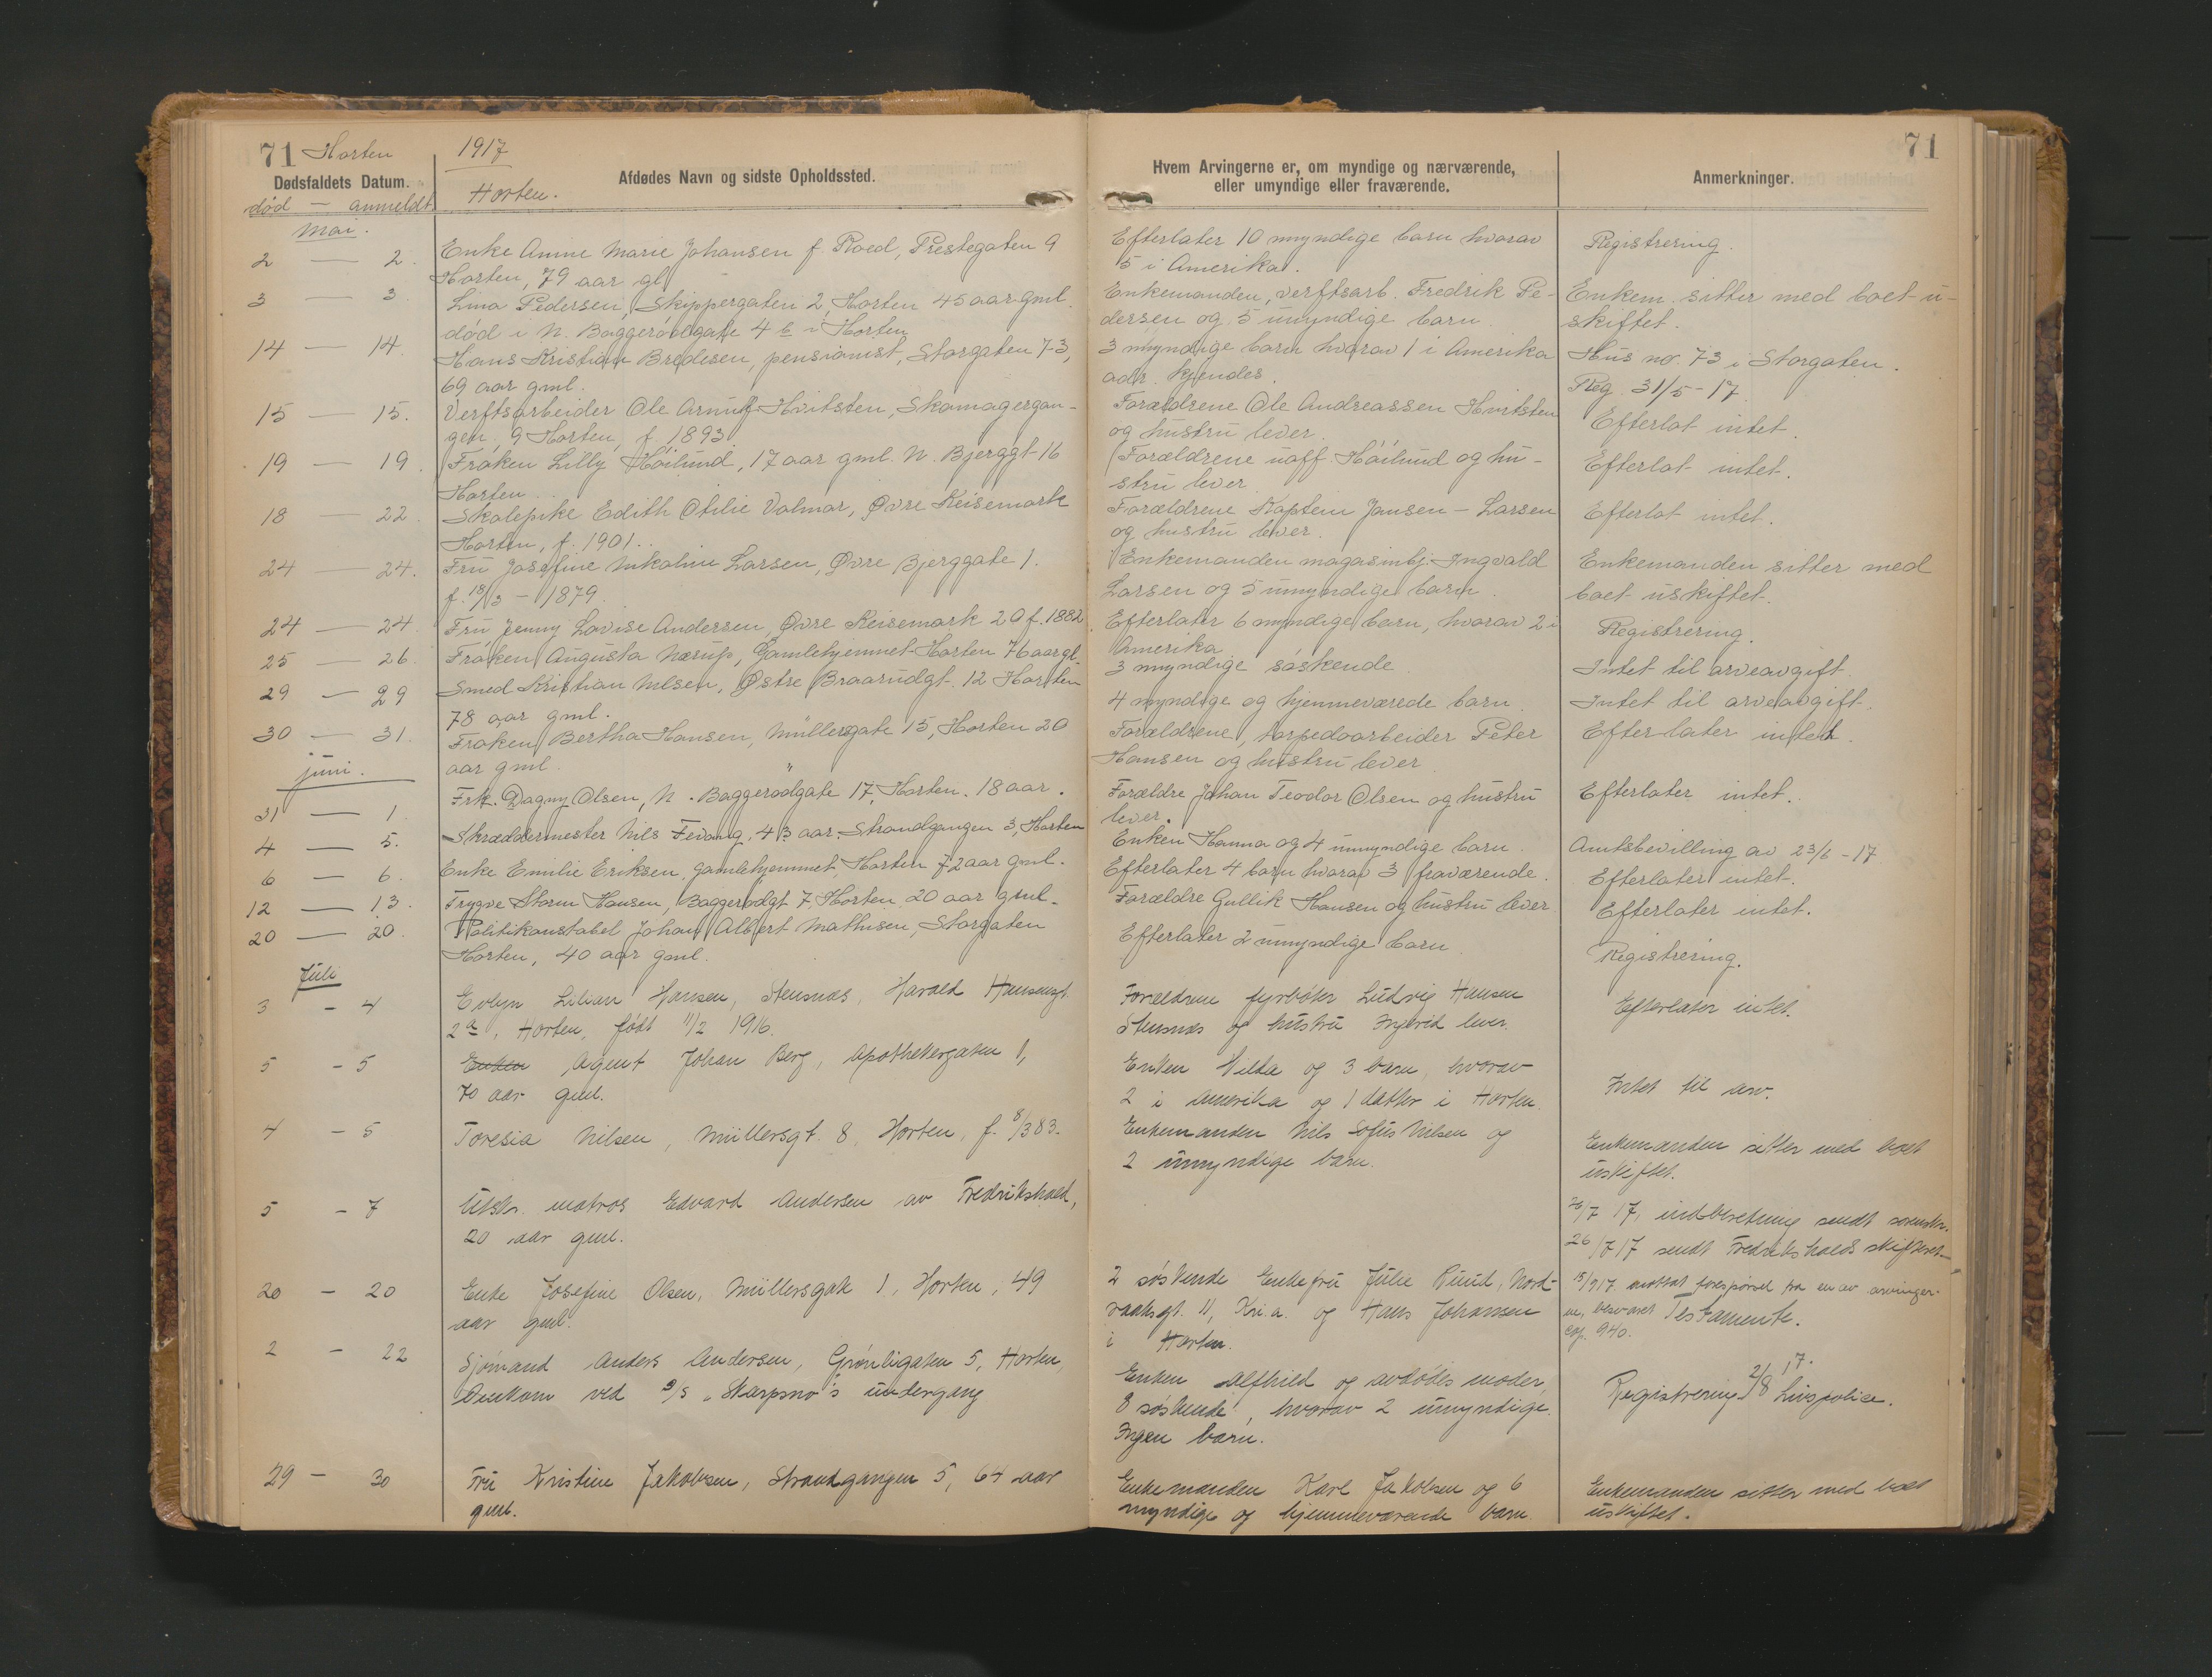 71 Horten 1917 71
Dødsfaldets Datum. Afdødes Navn og sidste Opholdssted. Hvem Arvingerne er, om myndige og nærværende, Anmerkninger.
eller umyndige eller fraværende.
død — anmeldt. Horten.
Mai.
2 — 2. Enke Anine Marie Johansen f. Roed, Prestegaten 9 Efterlater 10 myndige barn hvorav Registrering.
Horten, 79 aar gl. 5 i Amerika.
3 — 3. Lina Pedersen, Skippergaten 2, Horten 45 aar gml. Enkemanden, verftsarb. Fredrik Pe- Enkem. sitter med boet u-
død i N. Baggerødgate 4 b i Horten dersen og 5 umyndige barn. skiftet.
14 — 14. Hans Kristian Bredesen, pensionist, Storgaten 73, 3 myndige barn hvorav 1 i Amerika Hus no. 73 i Storgaten.
69 aar gml. adr. kjendes. Reg. 31/5-17.
15 — 15. Verftsarbeider Ole Arnulf Hvitsten, Skomagergan- Forældrene Ole Andreassen Hvitsten Efterlot intet.
gen 9 Horten, f. 1893. og hustru lever.
19 — 19. Frøken Lilly Høilund, 17 aar gml. N. Bjerggt 16 Forældrene uoff. Høilund og hu- Efterlot intet.
Horten. stru lever.
18 — 22. Skolepike Edith Otilie Valmar, Øvre Keisemark Forældrene Kaptein Jansen-Larsen Efterlot intet.
Horten, f. 1901. og hustru lever.
24 — 24. Fru Josefine Nikoline Larsen, Øvre Bjerggate 1. Enkemanden magasinbj. Ingvald Enkemanden sitter med
f. 18/3 - 1879. Larsen og 5 umyndige barn. boet uskiftet.
24 — 24. Fru Jenny Lovise Andersen, Øvre Keisemark 20 f. 1882 Efterlater 6 myndige barn, hvorav 2 i Registrering.
Amerika
25 — 26. Frøken Augusta Nærup, Gamlehjemmet Horten 76 aar gl. 3 myndige søskende. Intet til arveavgift.
29 — 29 Smed Kristian Nilsen, Østre Braarudgt. 12 Horten 4 myndige og hjemmeværede barn. Intet til arveavgift.
78 aar gml.
30 — 31. Frøken Bertha Hansen, Müllersgate 15, Horten 20 Forældrene, torpedoarbeider Peter Efterlater intet.
aar gml. Hansen og hustru lever.
juni.
31 — 1. Frk. Dagny Olsen, N. Baggerødgate 17, Horten. 18 aar. Forældre Johan Teodor Olsen og hustru Efterlater intet.
lever.
4 — 5. Skræddermester Nils Fevang. 43 aar. Strandgangen 3, Horten Enken Hanna og 4 umyndige barn. Amtsbevilling av 23/6-17.
6 — 6. Enke Emilie Eriksen, Gamlehjemmet, Horten 72 aar gml. Efterlater 4 barn hvorav 3 fraværende. Efterlater intet.
12 — 13. Trygve Storm Hansen, Baggerødgt 7, Horten, 20 aar gml. Forældre Gullik Hansen og hustru lever Efterlater intet.
20 — 20. Politikonstabel Johan Albert Mathisen, Storgaten Efterlater 2 umyndige barn. Registrering.
Horten, 40 aar gml.
Juli
3 - 4 Evelyn Lilian Hansen, Stensnæs, Harald Hansensgt. Forældrene fyrbøter Ludvig Hansen Efterlater intet.
2a, Horten, født 11/2 1916. Stensnæs og hustru Ingrid lever.
5 - 5 Enken Agent Johan Berg, Apothekergaten 1, Enken Hilda og 3 barn, hvorav Intet til arv.
70 aar gml. 2 i Amerika og 1 datter i Horten.
4 - 5 Toresia Nilsen, Müllersgt. 8, Horten, f. 8/3 83. Enkemanden Nils Sofus Nilsen og Enkemanden sitter med boet
2 umyndige barn. uskiftet.
5 - 7 Utskr. matros Edvard Andersen av Fredrikshald, 26/7 17, indberetning sendt sorenskr.
20 aar gml. 26/7 17 sendt Fredrikshalds skifteret
20 - 20 Enke Josefine Olsen, Müllersgate 1, Horten, 49 2 søskende Enkefru Julie Ruud, Nord- 15/9 17 mottat forespørsel fra en av arvinger-
aar gml. raaksgt. 11, Kr.a. og Hans Johansen ne, besvaret Testamente.
i Horten. cop. 940.
2 - 22 Sjømand Anders Andersen, Grønligaten 5, Horten, Enken Alfhild og avdødes moder, Registrering 2/8 17. Livspolice.
Omkom ved S/S "Skarpsno"s undergang 8 søskende, hvorav 2 umyndige.
Ingen barn.
29 - 30 Fru Kristine Jakobsen, Strandgangen 5, 64 aar Enkemanden Karl Jakobsen og 6 Enkemanden sitter med boet
gml. myndige og hjemmeværende barn. uskiftet.